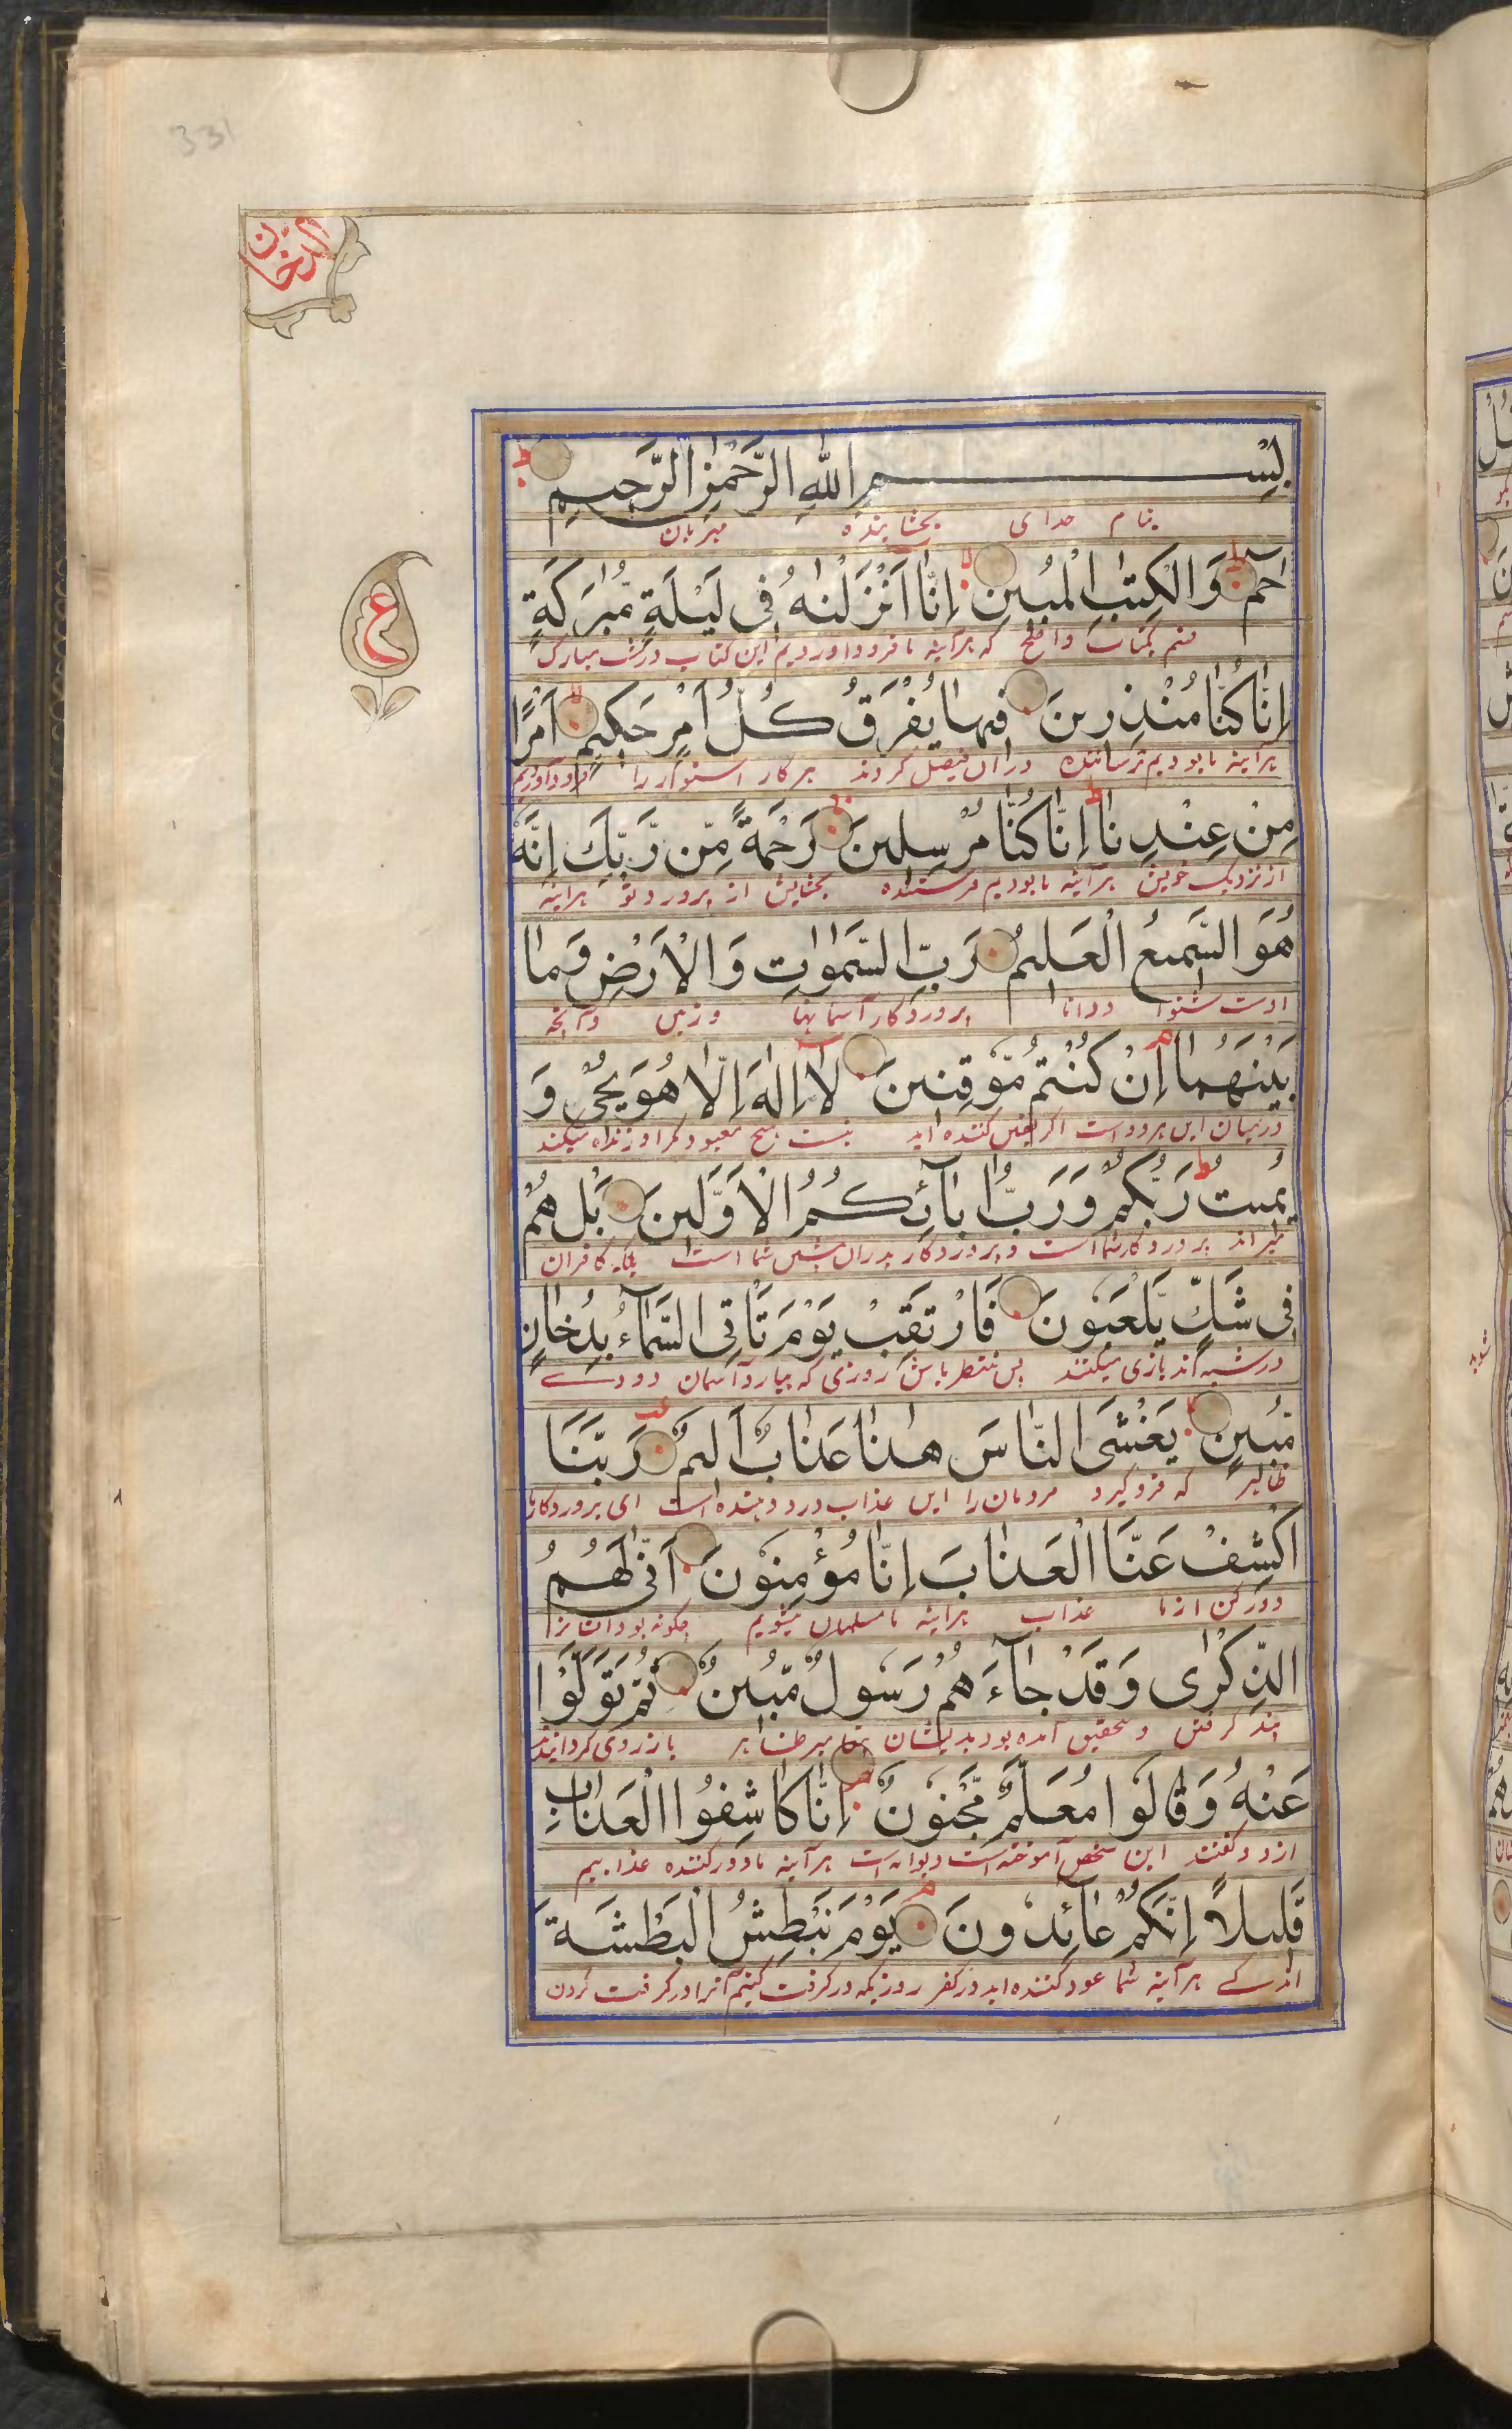 331
الدخان
بِسْمِ اللهِ الرَّحْمٰنِ الرَّحِيمِ
بنام خدای بخشاینده مهربان
حٰمٓ وَالْكِتٰبِ الْمُبِينِ اِنَّا اَنْزَلْنٰهُ فِى لَيْلَةٍ مُّبٰرَكَةٍ
ع
قسم بکتاب واضح که هرآینه ما فرود آوردیم این کتاب در شب مبارک
اِنَّا كُنَّا مُنْذِرِينَ فِيهَا يُفْرَقُ كُلُّ اَمْرٍ حَكِيمٍ اَمْرًا
هرآینه ما بودیم ترساننده دران فیصل کردند هر کار استوار را فرود آوردیم
مِنْ عِنْدِنَا اِنَّا كُنَّا مُرْسِلِينَ رَحْمَةً مِّن رَّبِّكَ اِنَّهٗ
از نزدیک خویش هرآینه ما بودیم فرستنده بخشایش از پرورد تو هراینه
هُوَ السَّمِيعُ الْعَلِيمُ رَبِّ السَّمٰوٰتِ وَالْاَرْضِ وَمَا
اوست شنوا ودانا پروردکار آسمانها وزمین وآنچه
بَيْنَهُمَا اِنْ كُنْتُمْ مُّوقِنِينَ لَا اِلٰهَ اِلَّا هُوَ يُحْىٖ وَ
درمیان این هر دو است اگر یقین کننده اید نیست هیچ معبود مگر او زنده میکند
يُمِيتُ رَبُّكُمْ وَرَبُّ اٰبَآئِكُمُ الْاَوَّلِينَ بَلْ هُمْ
میراند پروردکار شما است وپروردکار پدران پیشین شما است بلکه کافران
فِى شَكٍّ يَّلْعَبُونَ فَارْتَقِبْ يَوْمَ تَاْتِى السَّمَآءُ بِدُخَانٍ
در شبه اند بازی میکنند پس منتظر باش روزی که بیارد آسمان دودے
مُّبِينٍ يَغْشَى النَّاسَ هٰذَا عَذَابٌ اَلِيمٌ رَبَّنَا
ظاهر که فروگیرد مردمان را این عذاب درد دهنده است ای پروردکار ما
اكْشِفْ عَنَّا الْعَذَابَ اِنَّا مُؤْمِنُونَ اَنّٰى لَهُمُ
دورکن از ما عذاب هراینه ما مسلمان میشویم چگونه بود
الذِّكْرٰى وَقَدْ جَآءَهُمْ رَسُولٌ مُّبِينٌ ثُمَّ تَوَلَّوْا
پند گرفتن وبتحقیق آمده بود بدیشان پیغامبر ظاهر باز روی گردانیدند
عَنْهُ وَقَالُوا مُعَلَّمٌ مَّجْنُونٌ اِنَّا كَاشِفُوا الْعَذَابِ
ازو وگفتند این شخص آموخته است دیوانه است هرآینه ما دورکننده عذابیم
قَلِيلًا اِنَّكُمْ عَآئِدُونَ يَوْمَ نَبْطِشُ الْبَطْشَةَ
اندکے هرآینه شما عود کننده اید در کفر روزیکه در گرفت کنیم آنرا در گرفت کردن